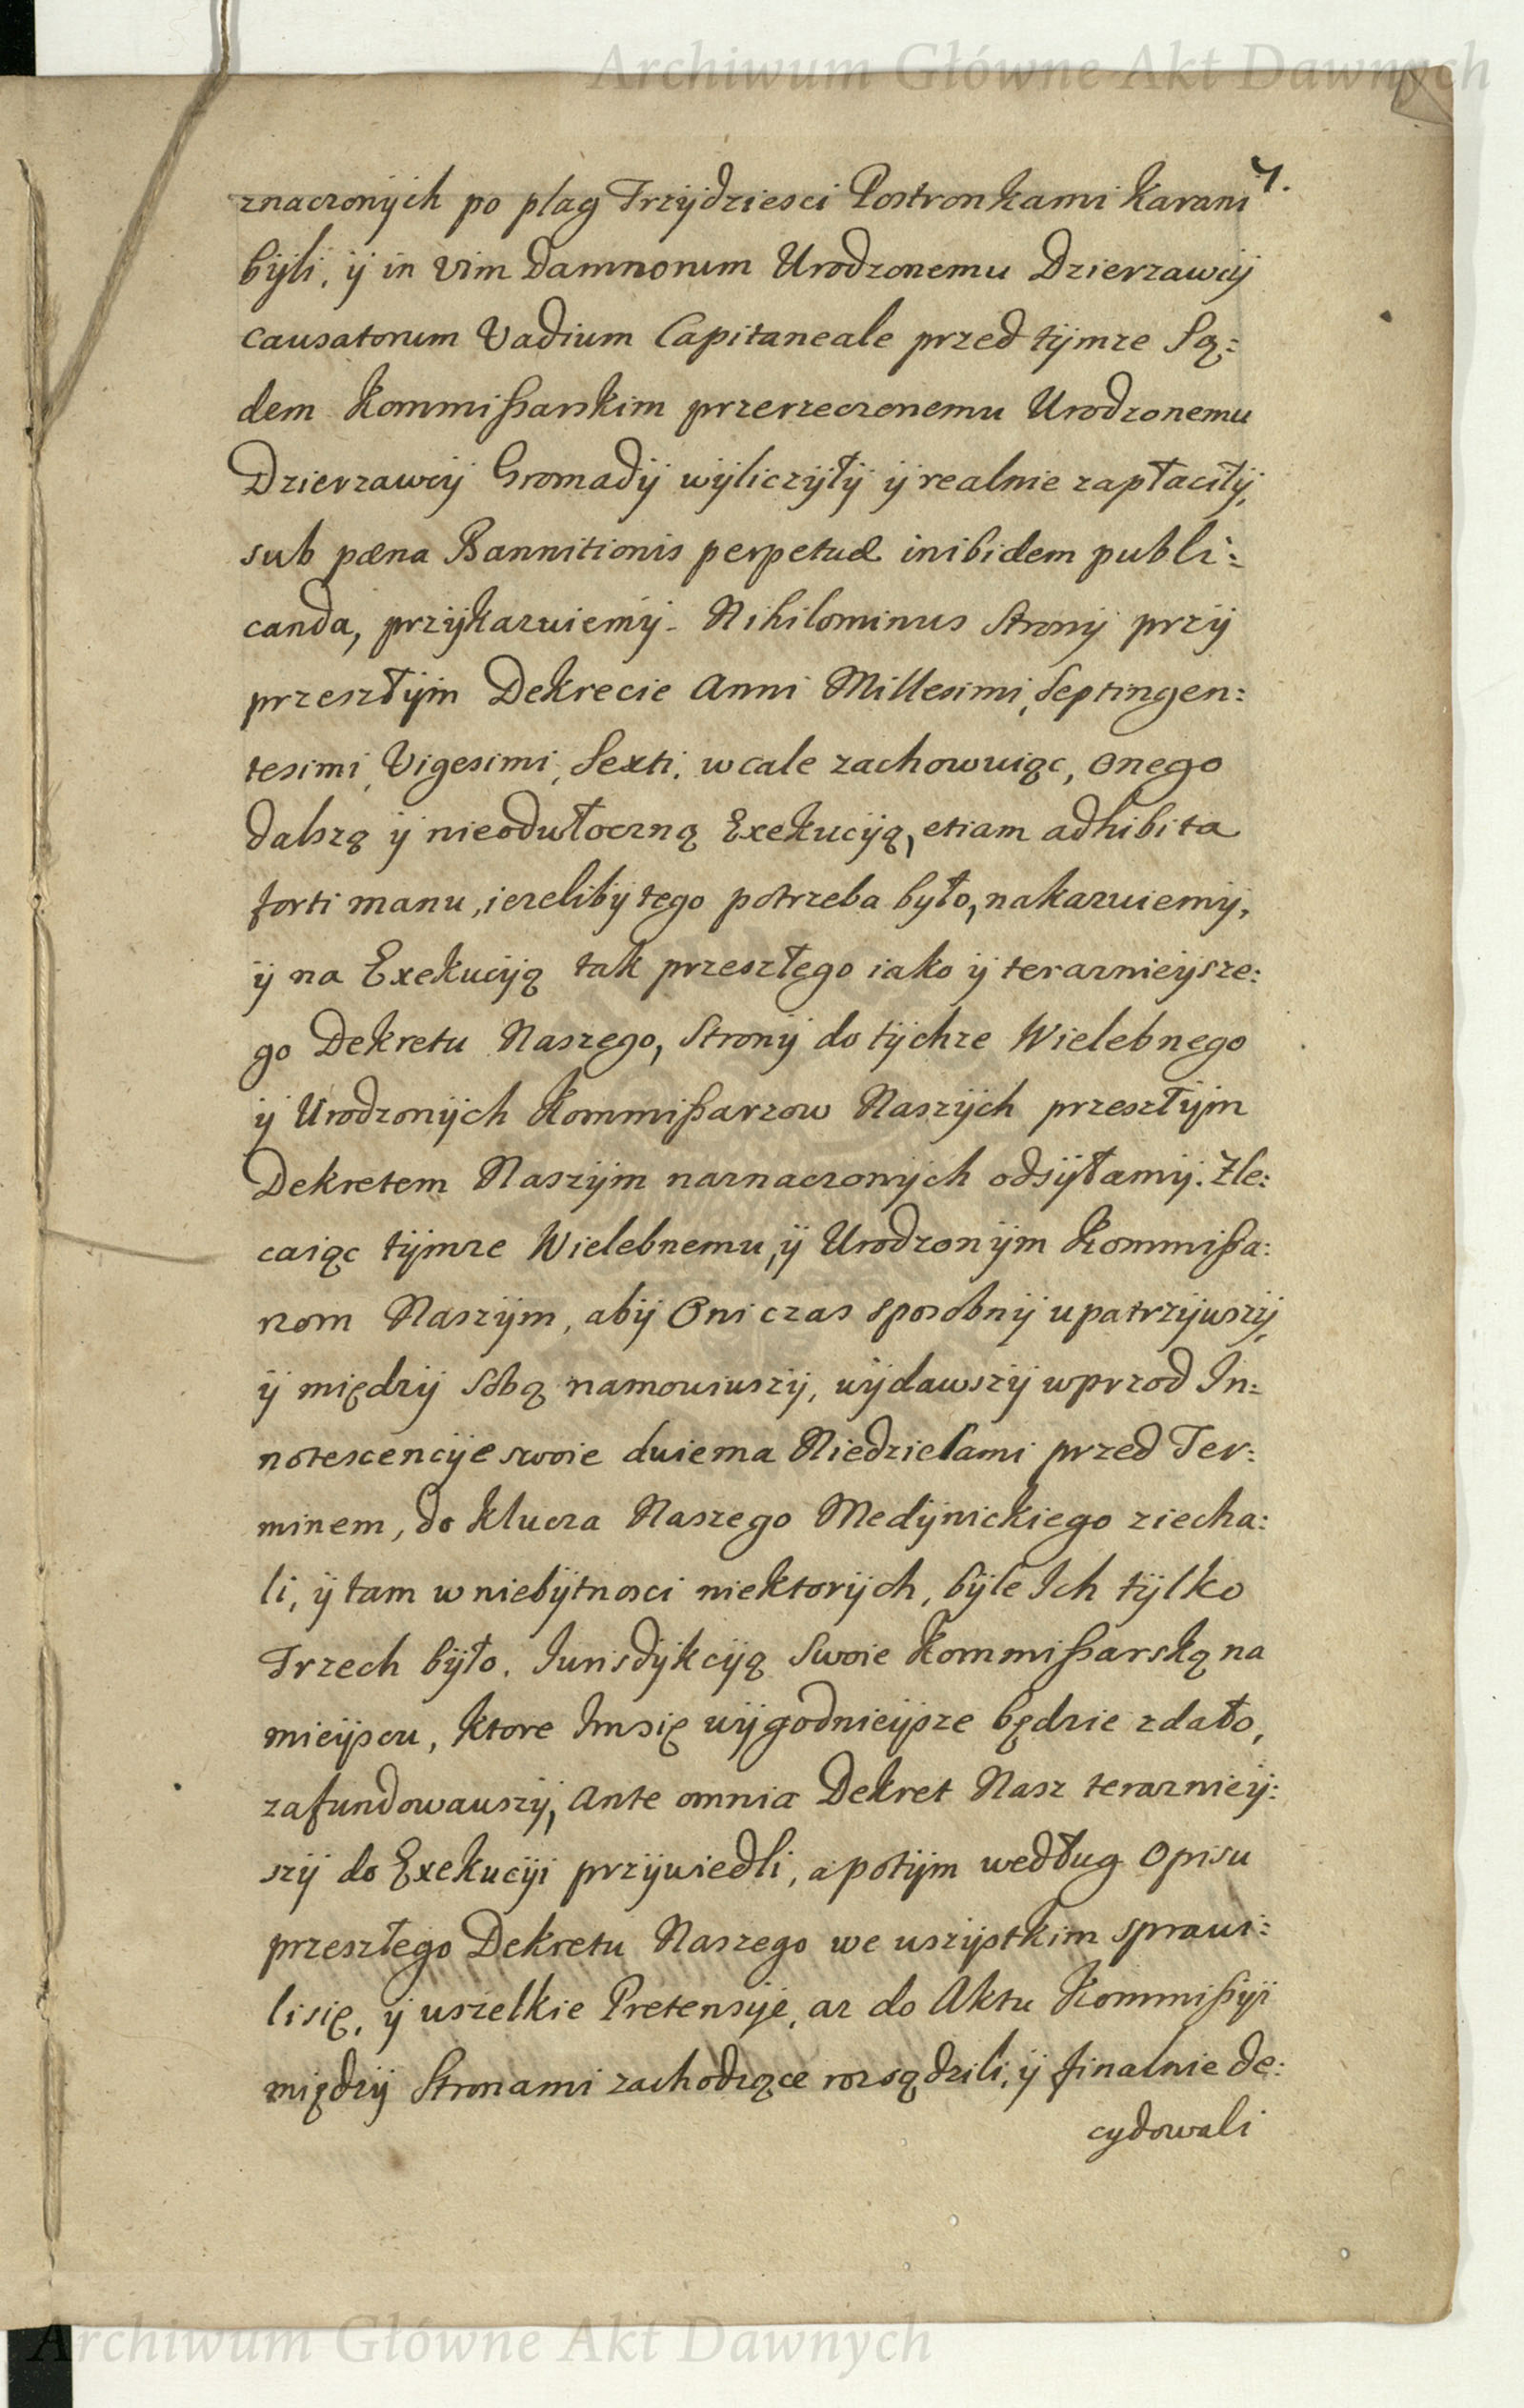 Archiwum Główne Akt Dawnych
7.
znaczonych po plag Trzydziesci Postronkami karani
byli, y in vim Damnorum Urodzonemu Dzierzawcy
causatorum Vadium Capitaneale przed tymze Są:
dem Kommißarskim przerzeczonemu Urodzonemu
Dzierzawcy Gromady wyliczyły y realnie zapłaciły,
sub pœna Bannitionis perpetuæ inibidem publi:
canda, przykazuiemy. Nihilominus Strony przy
przeszłym Dekrecie Anni Millesimi, Septingen:
tesimi, Vigesimi, Sexti, wcale zachowuiąc, onego
dalszą y nieodwłoczną Exekucyą, etiam adhibita
forti manu, iezeliby tego potrzeba było, nakazuiemy,
y na Exekucyą tak przeszłego iako y terazniejsze:
go Dekretu Naszego, Strony do tychze Wielebnego
y Urodzonych Kommißarzow Naszych przeszłym
Dekretem Naszym naznaczonych odsyłamy. Zle:
caiąc tymze Wielebnemu, y Urodzonym Kommißa:
rzom Naszym, aby Oni czas sposobny upatrzywszy,
y między sobą namowiwszy, wydawszy wprzod In:
notescencye swoie dwiema Niedzielami przed Ter:
minem, do Klucza Naszego Medynickiego ziecha:
li, y tam w niebytnosci niektorych, byle Ich tylko
Trzech było, Iurisdykcyą Swoie Kommißarską na
mieyscu, ktore Im się wygodnieysze będzie zdało,
zafundowawszy, Ante omnia Dekret Nasz terazniey:
szy do Exekucyi przywiedli, a potym według Opisu
przeszłego Dekretu Naszego we wszystkim sprawi:
li się, y wszelkie Pretensye, az do Aktu Kommißyi
między Stronami zachodzące rozsądzili, y finalnie de:
cydowali
Archiwum Główne Akt Dawnych